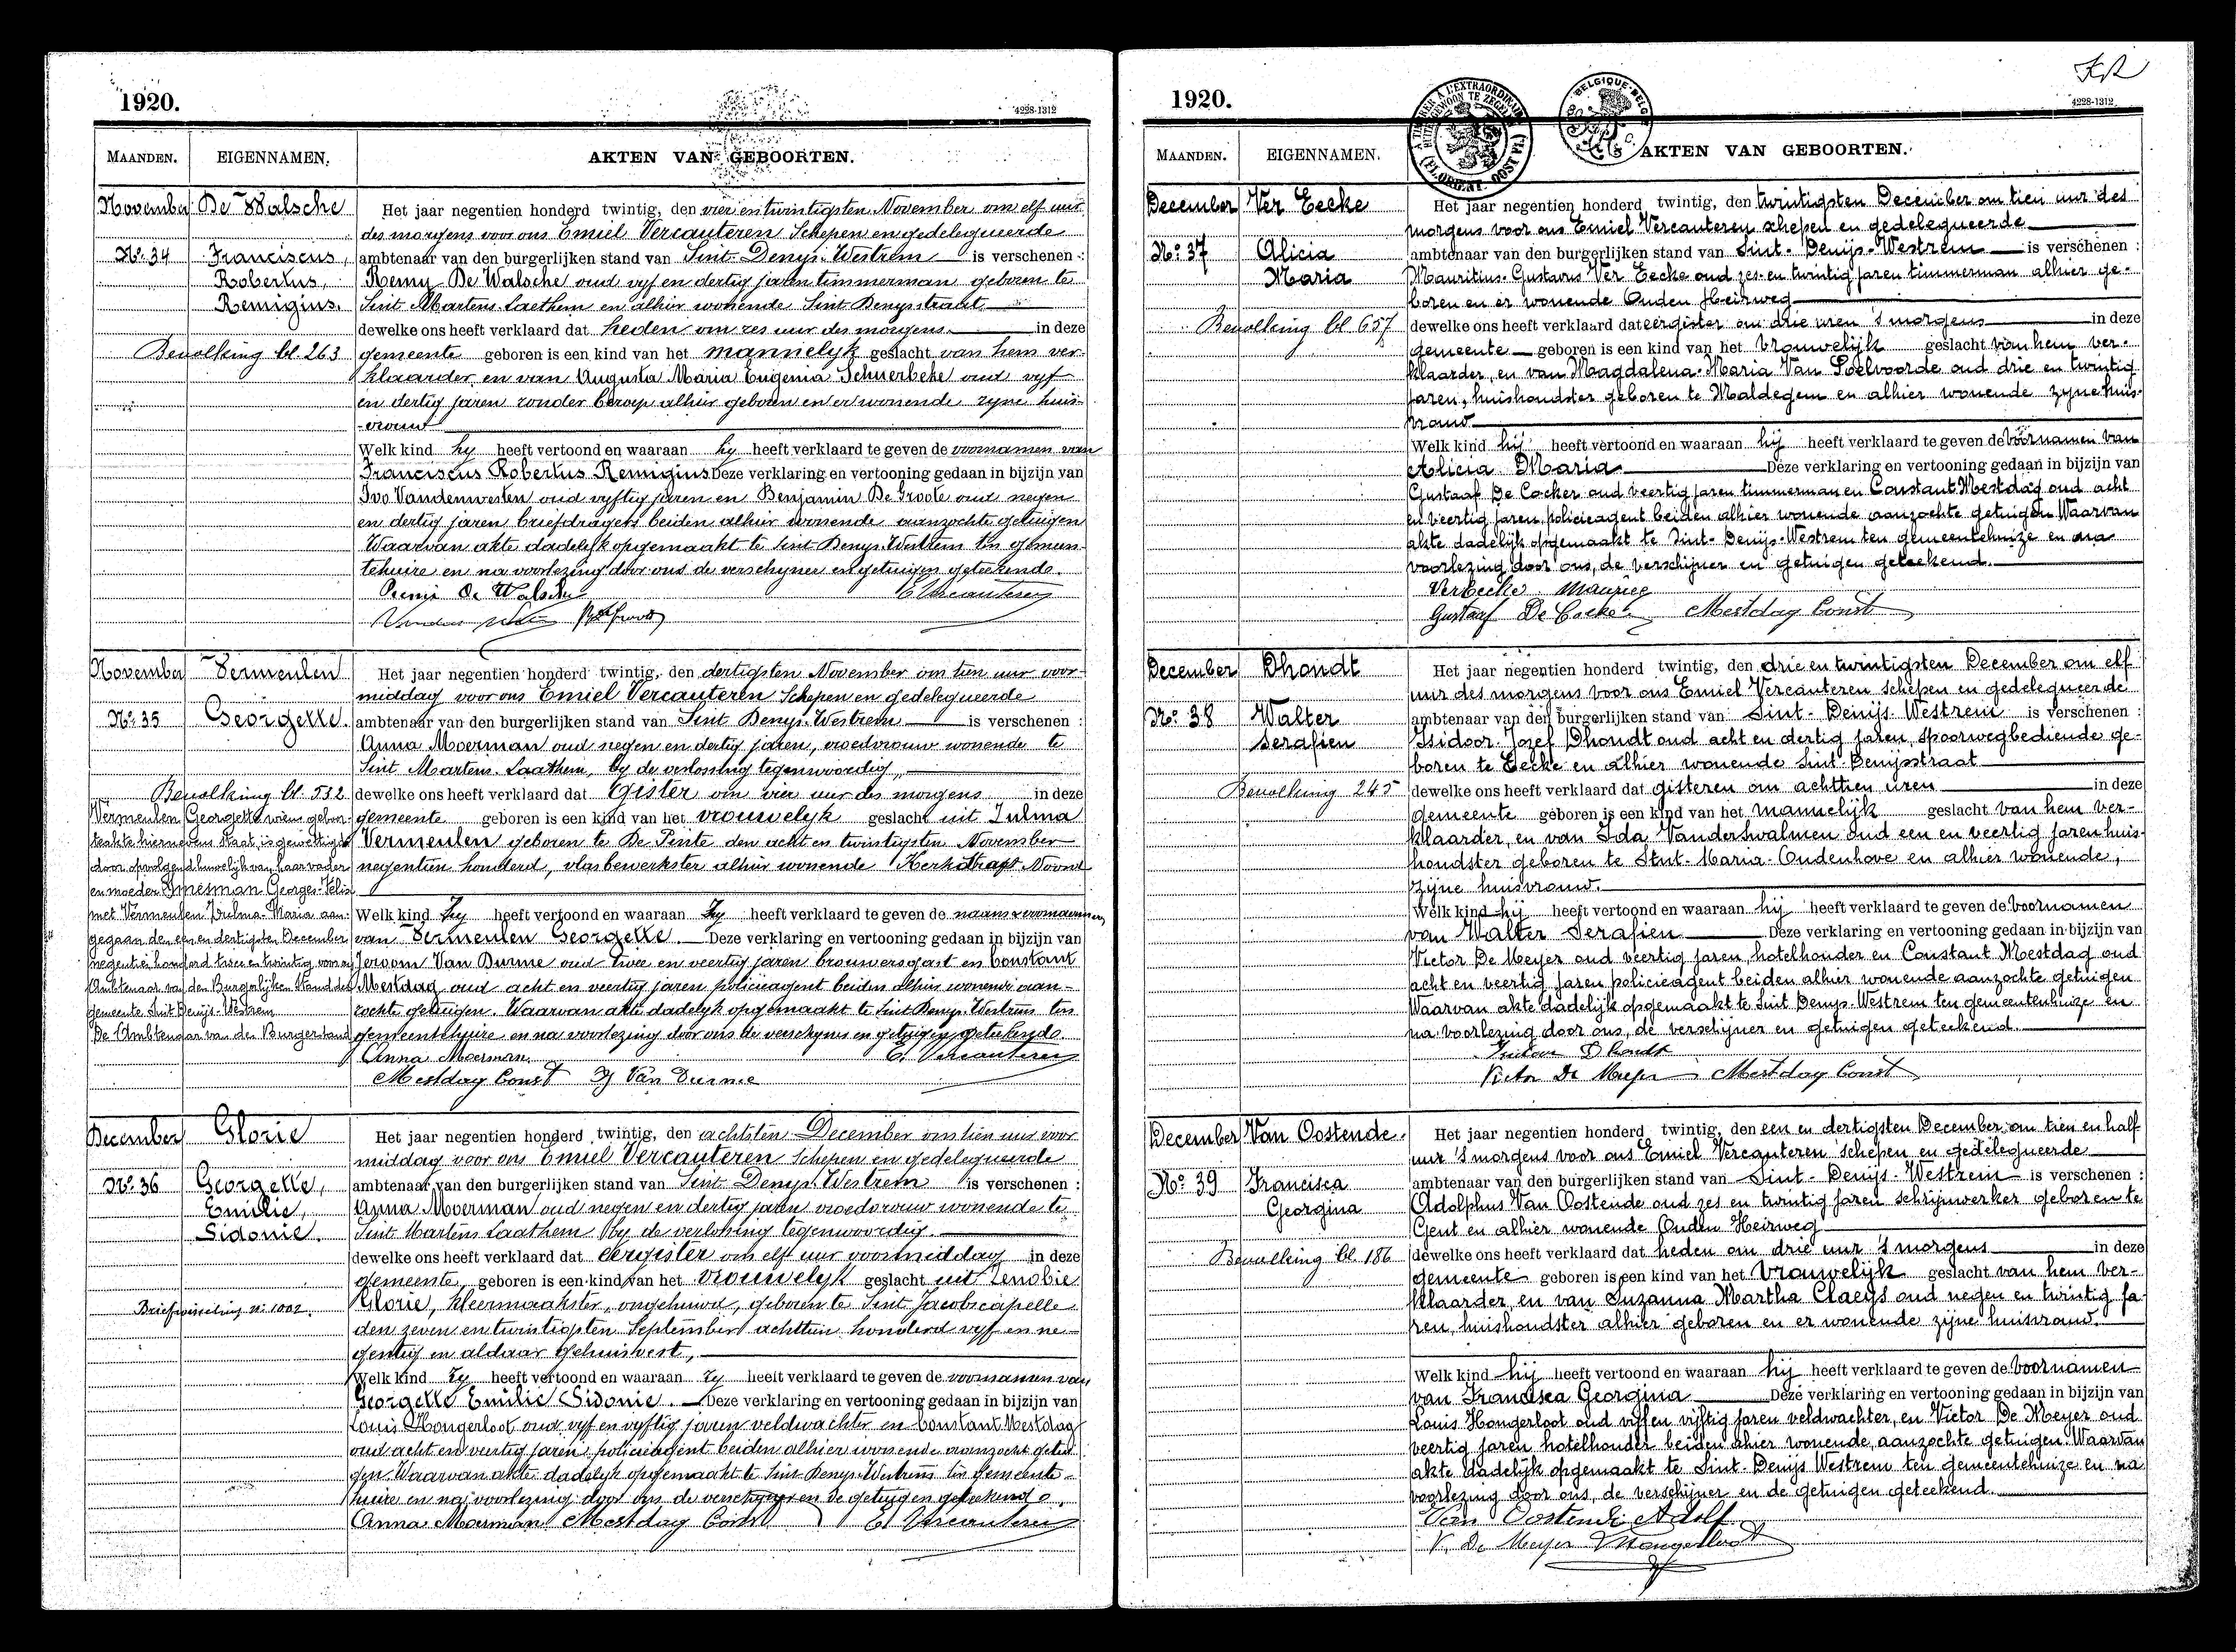 1920.
4228-1312
MAANDEN.
EIGENNAMEN.
AKTEN VAN GEBOORTEN.
November
De Walsche
Nº 34
Franciscus,
Robertus,
Remigius.
Bevolking bl. 263
Het jaar negentien honderd twintig, den vier en twintigsten November om elf uur
des morgens voor ons Emiel Vercauteren Schepen en gedelegueerde
ambtenaar van den burgerlijken stand van Sint-Denys-Westrem is verschenen :
Remy De Walsche oud vyf en dertig jaren timmerman geboren te
Sint Martens-Laethem en alhier wonende Sint Denysstraat
dewelke ons heeft verklaard dat heden om zes uur des morgens in deze
gemeente geboren is een kind van het mannelyk geslacht van hem ver-
klaarder en van Augusta Maria Eugenia Schuerbeke oud vyf
en dertig jaren zonder beroep alhier geboren en er wonende zyne huis-
-vrouw
Welk kind hy heeft vertoond en waaraan hy heeft verklaard te geven de voornamen van
Franciscus Robertus Remigius. Deze verklaring en vertooning gedaan in bijzijn van
Ivo Vandenwesten oud vyftig jaren en Benjamin De Groote oud negen
en dertig jaren briefdragers beiden alhier wonende aanzochte getuigen
Waarvan akte dadelyk opgemaakt te Sint-Denys-Westrem ten gemeen-
tehuize en na voorlezing door ons de verschyner en getuigen geteekend.
Remi De Walsche E Vercauteren
November
Vermeulen
Nº 35
Georgette.
Bevolking bl. 532
Vermeulen Georgette wiens geboor-
teakte hiernevens staat, is gewettigd
door opvolgend huwelijk van haar vader
en moeder Gmesman Georges-Felix
met Vermeulen Zulma-Maria aan-
gegaan den een en dertigsten December
negentien honderd twee en twintig voor den
Ambtenaar van den Burgerlijken Stand der
gemeente Sint Denijs-Westrem
De Ambtenaar van den Burgerstand
Het jaar negentien honderd twintig, den dertigsten November om tien uur voor-
middag voor ons Emiel Vercauteren Schepen en gedelegueerde
ambtenaar van den burgerlijken stand van Sint Denys-Westrem is verschenen :
Anna Moerman oud negen en dertig jaren, vroedvrouw wonende te
Sint Martens-Laathem, by de verlossing tegenwoordig,
dewelke ons heeft verklaard dat Gister om vier uur des morgens in deze
gemeente geboren is een kind van het vrouwelyk geslacht uit Zulma
Vermeulen geboren te De Pinte den acht en twintigsten November
negentien honderd, vlasbewerkster alhier wonende Kerkdragt Noord
Welk kind Zy heeft vertoond en waaraan Zy heeft verklaard te geven de naam & voornamen
van Vermeulen Georgette. Deze verklaring en vertooning gedaan in bijzijn van
Jeroom Van Durme oud twee en veertig jaren brouwersgast en Constant
Mestdag oud acht en veertig jaren policieagent beiden alhier wonende aan-
zochte getuigen. Waarvan akte dadelyk opgemaakt te Sint Denys-Westrem ten
gemeentehuize en na voorlezing door ons de verschyner en getuigen geteekend.
Anna Moerman. E. Vercauteren
Mestday Const J Van Durme
December
Glorie
Nº 36
Georgette,
Emilie,
Sidonie.
Briefwisseling nº 1002.
Het jaar negentien honderd twintig, den achtsten December om tien uur voor
middag voor ons Emiel Vercauteren Schepen en gedelegueerde
ambtenaar van den burgerlijken stand van Sint Denys-Westrem is verschenen :
Anna Moerman oud negen en dertig jaren vroedvrouw wonende te
Sint Martens Laathem by de verlossing tegenwoordig.
dewelke ons heeft verklaard dat eergister om elf uur voormiddag in deze
gemeente geboren is een kind van het vrouwelyk geslacht uit Zenobie
Glorie, kleermaakster, ongehuwd, geboren te Sint Jacobscapelle
den zeven en twintigsten September achttien honderd vyf en ne-
gentig en aldaar gehuisvest,
Welk kind Zy heeft vertoond en waaraan Zy heeft verklaard te geven de voornamen van
Georgette Emilie Sidonie. Deze verklaring en vertooning gedaan in bijzijn van
Louis Hongerloot oud vyf en vyftig jaren veldwachter en Constant Mestdag
oud acht en veertig jaren policieagent beiden alhier wonende aanzocht getui-
gen. Waarvan akte dadelyk opgemaakt te Sint-Denys-Westrem ten gemeente-
huize en na voorlezing door ons de verschyner en de getuigen geteekend.
Anna Moerman Mestday Const E Vercauteren
1920.
4228-1312
MAANDEN.
EIGENNAMEN.
AKTEN VAN GEBOORTEN.
December
Ver Eecke
Nº 37
Alicia
Maria
Bevolking bl 657
Het jaar negentien honderd twintig, den twintigsten December om tien uur des
morgens voor ons Emiel Vercauteren schepen en gedelegueerde
ambtenaar van den burgerlijken stand van Sint-Denijs-Westrem is verschenen :
Mauritius-Gustavus Ver Eecke oud zes en twintig jaren timmerman alhier ge-
boren en er wonende Ouden Heirweg
dewelke ons heeft verklaard dat eergister om drie uren 's morgens in deze
gemeente geboren is een kind van het vrouwelijk geslacht van hem ver-
klaarder, en van Magdalena-Maria Van Poelvoorde oud drie en twintig
jaren, huishoudster geboren te Maldegem en alhier wonende zyne huis-
vrouw
Welk kind hij heeft vertoond en waaraan hij heeft verklaard te geven de voornamen van
Alicia Maria Deze verklaring en vertooning gedaan in bijzijn van
Gustaaf De Cocker oud veertig jaren timmerman en Constant Mestdag oud acht
en veertig jaren policieagent beiden alhier wonende aanzochte getuigen Waarvan
akte dadelijk opgemaakt te Sint-Denijs-Westrem ten gemeentehuize en na
voorlezing door ons, de verschijner en getuigen geteekend.
Vereecke Maurice
Gustaaf De Cocker Mestdag Const
December
Dhondt
Nº 38
Walter
Serafien
Bevolking 245
Het jaar negentien honderd twintig, den drie en twintigsten December om elf
uur des morgens voor ons Emiel Vercauteren schepen en gedelegueerde
ambtenaar van den burgerlijken stand van Sint-Denijs-Westrem is verschenen :
Isidoor Jozef Dhondt oud acht en dertig jaren, spoorwegbediende ge-
boren te Eecke en alhier wonende Sint-Denijsstraat
dewelke ons heeft verklaard dat gisteren om achttien uren in deze
gemeente geboren is een kind van het mannelijk geslacht van hem ver-
klaarder, en van Ida Vanderswalmen oud een en veertig jaren huis-
houdster geboren te Sint-Maria-Oudenhove en alhier wonende,
zijne huisvrouw.
Welk kind hij heeft vertoond en waaraan hij heeft verklaard te geven de voornamen
van Walter Serafien Deze verklaring en vertooning gedaan in bijzijn van
Victor De Meyer oud veertig jaren, hotelhouder en Constant Mestdag oud
acht en veertig jaren policieagent beiden alhier wonende aanzochte getuigen
Waarvan akte dadelijk opgemaakt te Sint Denijs-Westrem ten gemeentenhuize en
na voorlezing door ons, de verschijner en getuigen geteekend.
Isidoor Dhondt
Victor De Meyer Mestday Const
December
Van Oostende.
Nº 39
Francisca
Georgina
Bevolking bl. 186
Het jaar negentien honderd twintig, den een en dertigsten December om tien en half
uur 's morgens voor ons Emiel Vercauteren schepen en gedelegueerde
ambtenaar van den burgerlijken stand van Sint-Denijs-Westrem is verschenen :
Adolphus Van Oostende oud zes en twintig jaren schrijnwerker geboren te
Gent en alhier wonende Ouden Heirweg
dewelke ons heeft verklaard dat heden om drie uur 's morgens in deze
gemeente geboren is een kind van het vrouwelijk geslacht van hem ver-
klaarder en van Suzanna Martha Claeys oud negen en twintig ja-
ren, huishoudster alhier geboren en er wonende zijne huisvrouw.
Welk kind hij heeft vertoond en waaraan hij heeft verklaard te geven de voornamen
van Francisca Georgina Deze verklaring en vertooning gedaan in bijzijn van
Louis Hongerloot oud vijf en vijftig jaren veldwachter, en Victor De Meyer oud
veertig jaren hotelhouder beiden alhier wonende, aanzochte getuigen. Waarvan
akte dadelijk opgemaakt te Sint-Denijs Westrem ten gemeentehuize en na
voorlezing door ons, de verschijner en de getuigen geteekend.
Van Oostende Adolf
V. De Meyer Hongerloot